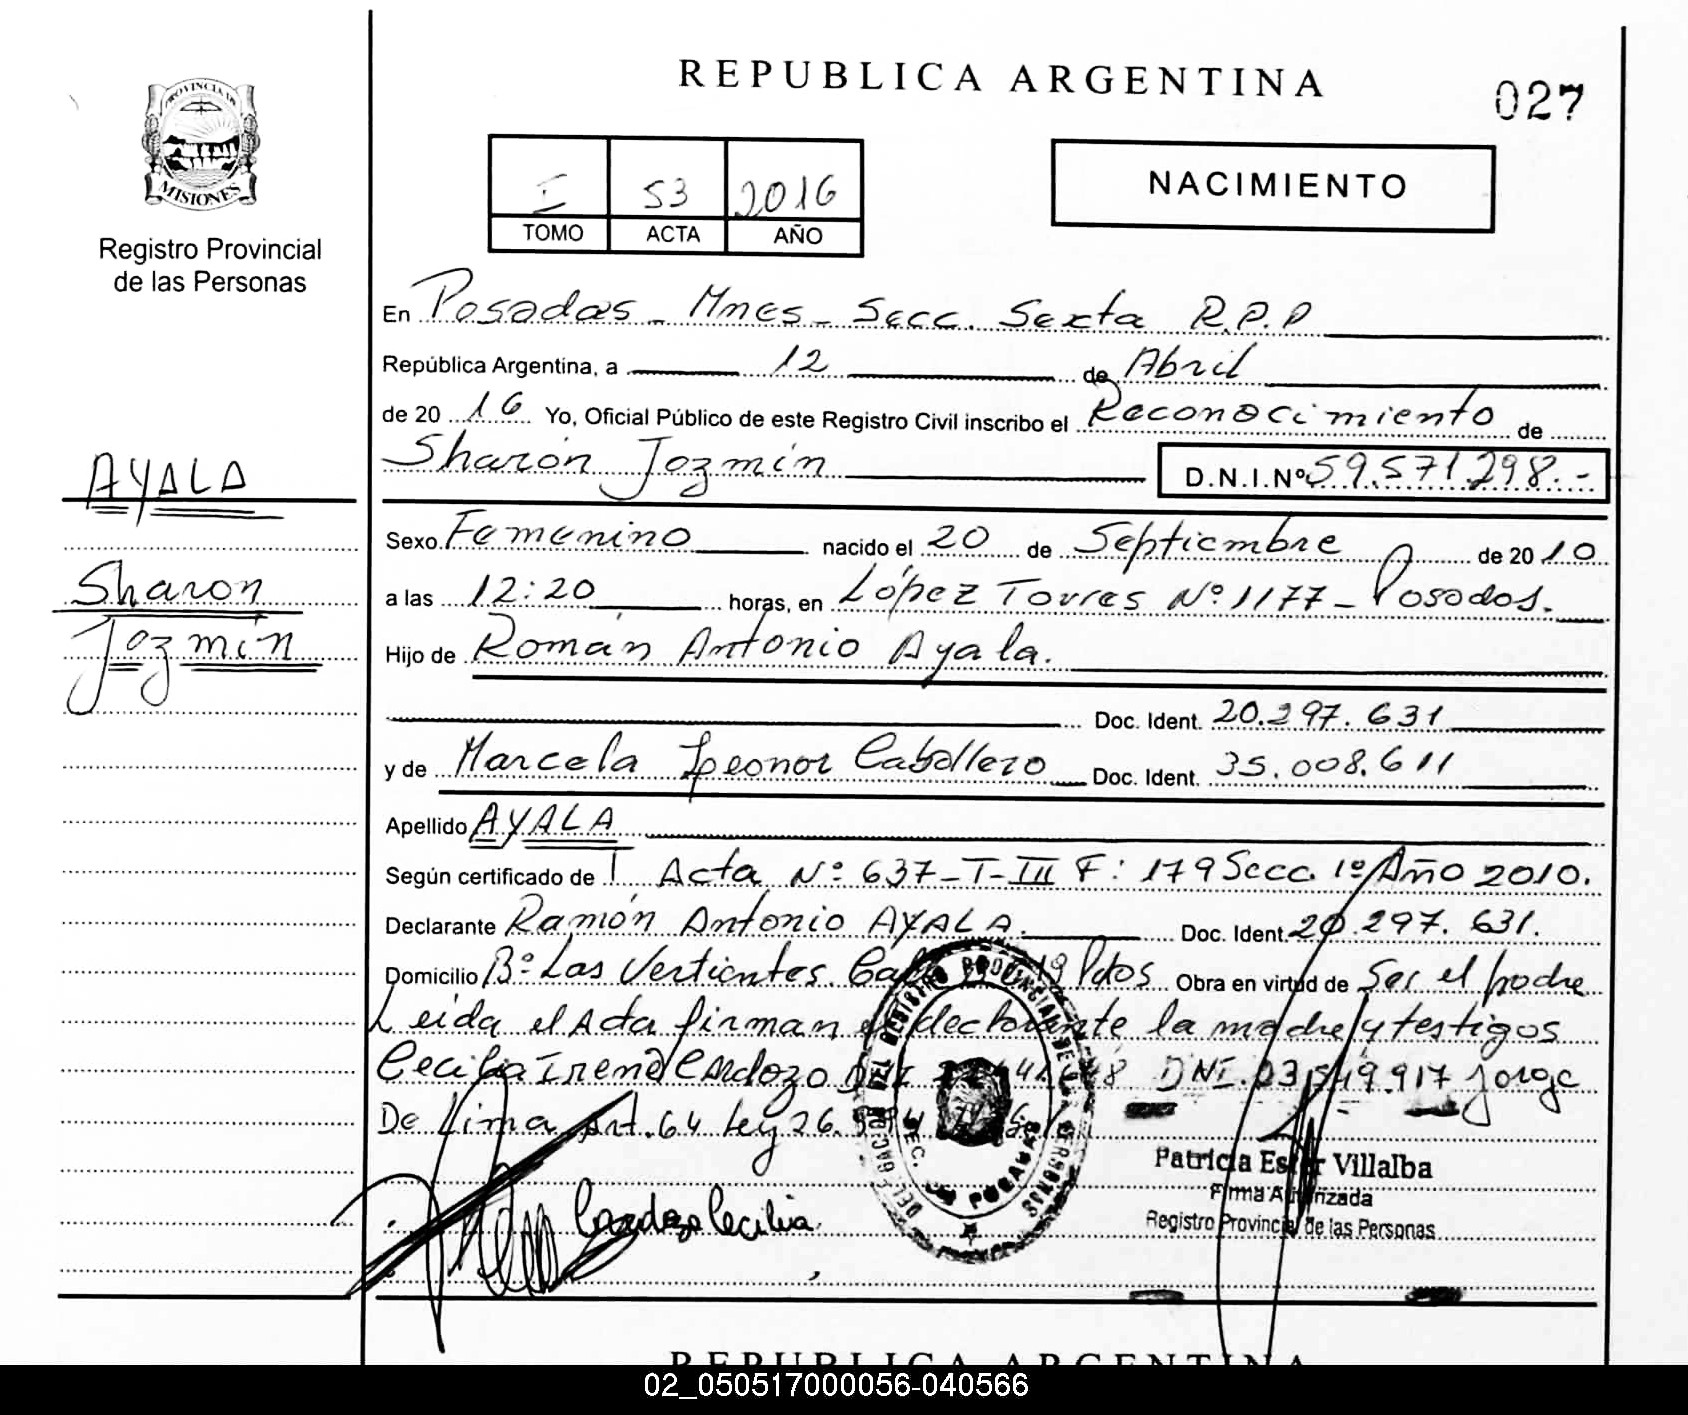 REPUBLICA ARGENTINA
027
PROVINCIA DE
MISIONES
Registro Provincial
de las Personas
I 53 2016
TOMO ACTA AÑO
NACIMIENTO
En Posadas - Mnes - Secc. Sexta R.P.P
República Argentina, a 12 de Abril
de 20 16 Yo, Oficial Público de este Registro Civil inscribo el Reconocimiento de
Sharon Jazmín D.N.I.Nº 59.571.298.-
AYALA
Sharon
Jazmín
Sexo Femenino nacido el 20 de Septiembre de 20 10
a las 12:20 horas, en López Torres Nº 1177 - Posadas.
Hijo de Román Antonio Ayala.
Doc. Ident. 20.297.631
y de Marcela Leonor Caballero Doc. Ident. 35.008.611
Apellido AYALA
Según certificado de Acta Nº 637-T-III F: 179 Secc. 1º Año 2010.
Declarante Ramón Antonio AYALA. Doc. Ident. 20.297.631.
Domicilio Bº Las Vertientes. Pdas Obra en virtud de Ser el padre
Leída el Acta firman el declarante la madre y testigos
Cecilia Irene Cardozo DNI. 03.549.917 Jorge
De Lima Art. 64 Ley 26.
DELEGACION DEL REGISTRO PROVINCIAL DE LAS PERSONAS
SEC.
POSADAS
Cardozo Cecilia
Patricia Ester Villalba
Firma Autorizada
Registro Provincial de las Personas
REPUBLICA ARGENTINA
02_050517000056-040566